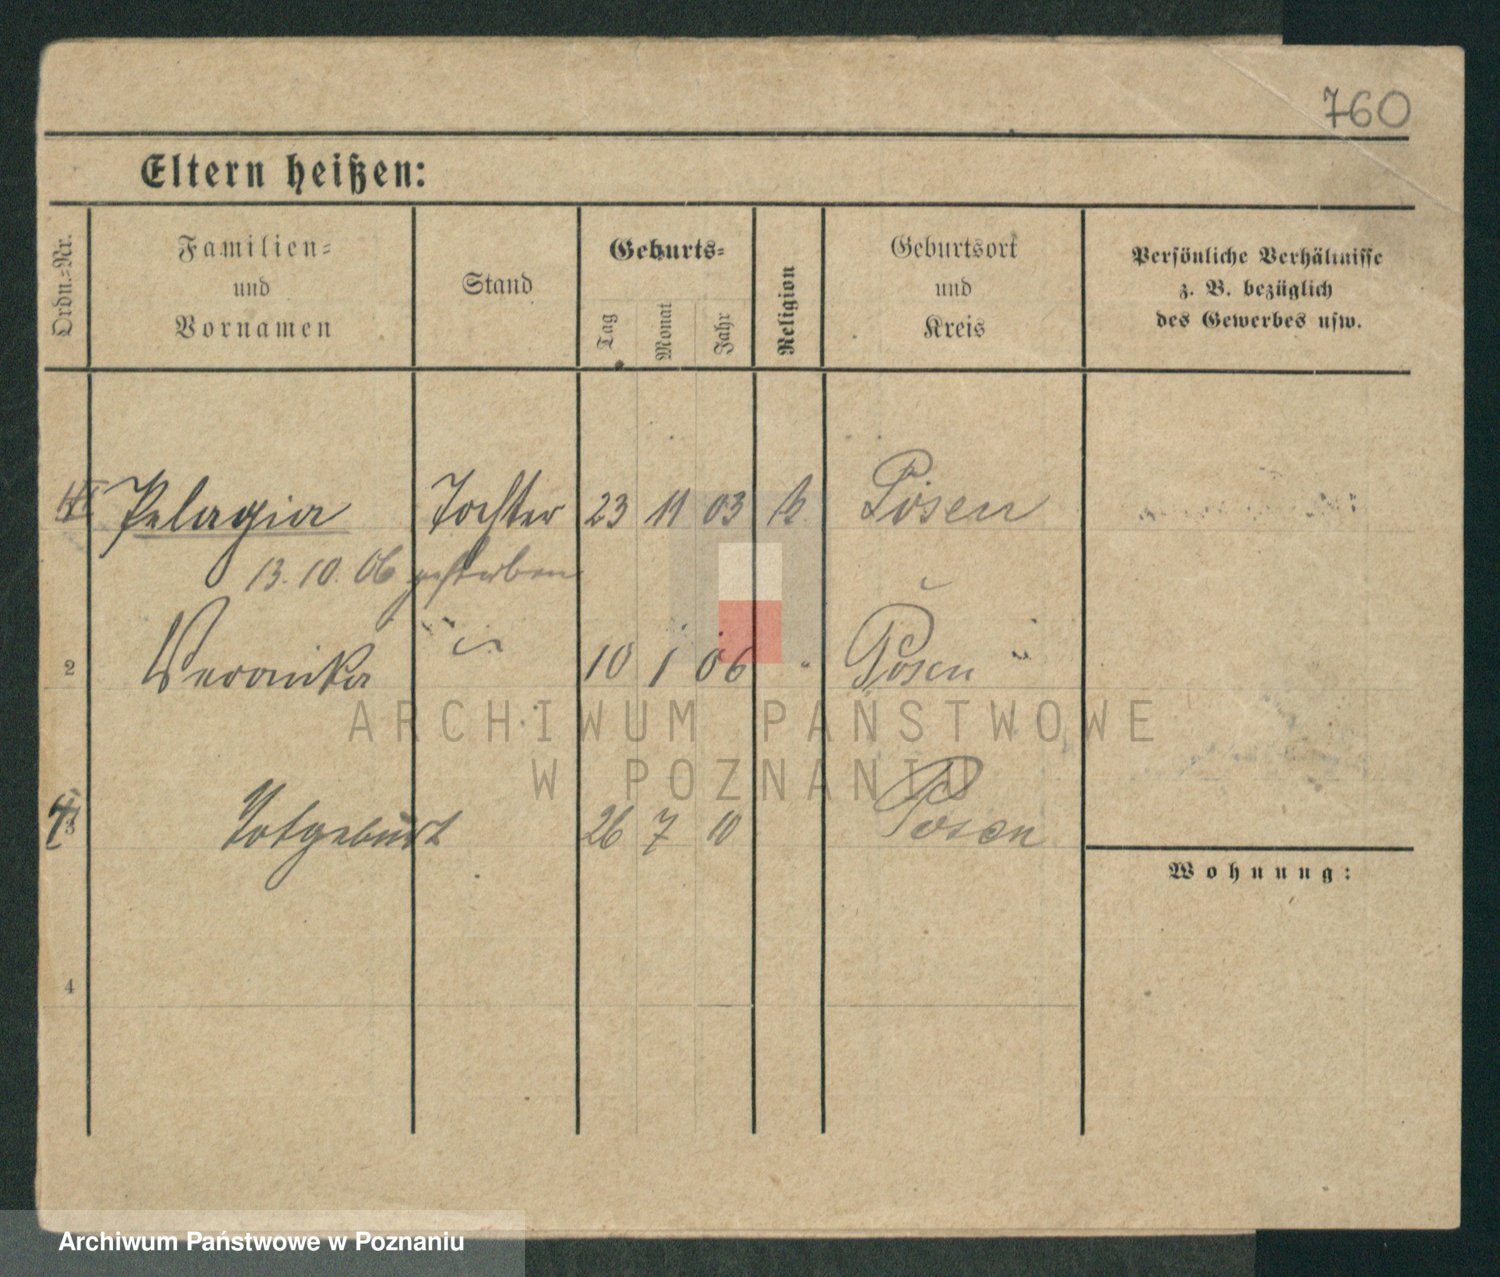 760
Eltern heißen:
Ordn.-Nr.
Familien-
und
Vornamen
Stand
Geburts-
Tag
Monat
Jahr
Religion
Geburtsort
und
Kreis
Persönliche Verhältnisse
z. B. bezüglich
des Gewerbes usw.
Pelagia Tochter 23 11 03 k Posen
13. 10. 06 gestorben
2 Veronika " 10 1 06 " Posen "
ARCHIWUM PAŃSTWOWE
W POZNANIU
3 Totgeburt 26 7 10 Posen
Wohnung:
4
Archiwum Państwowe w Poznaniu